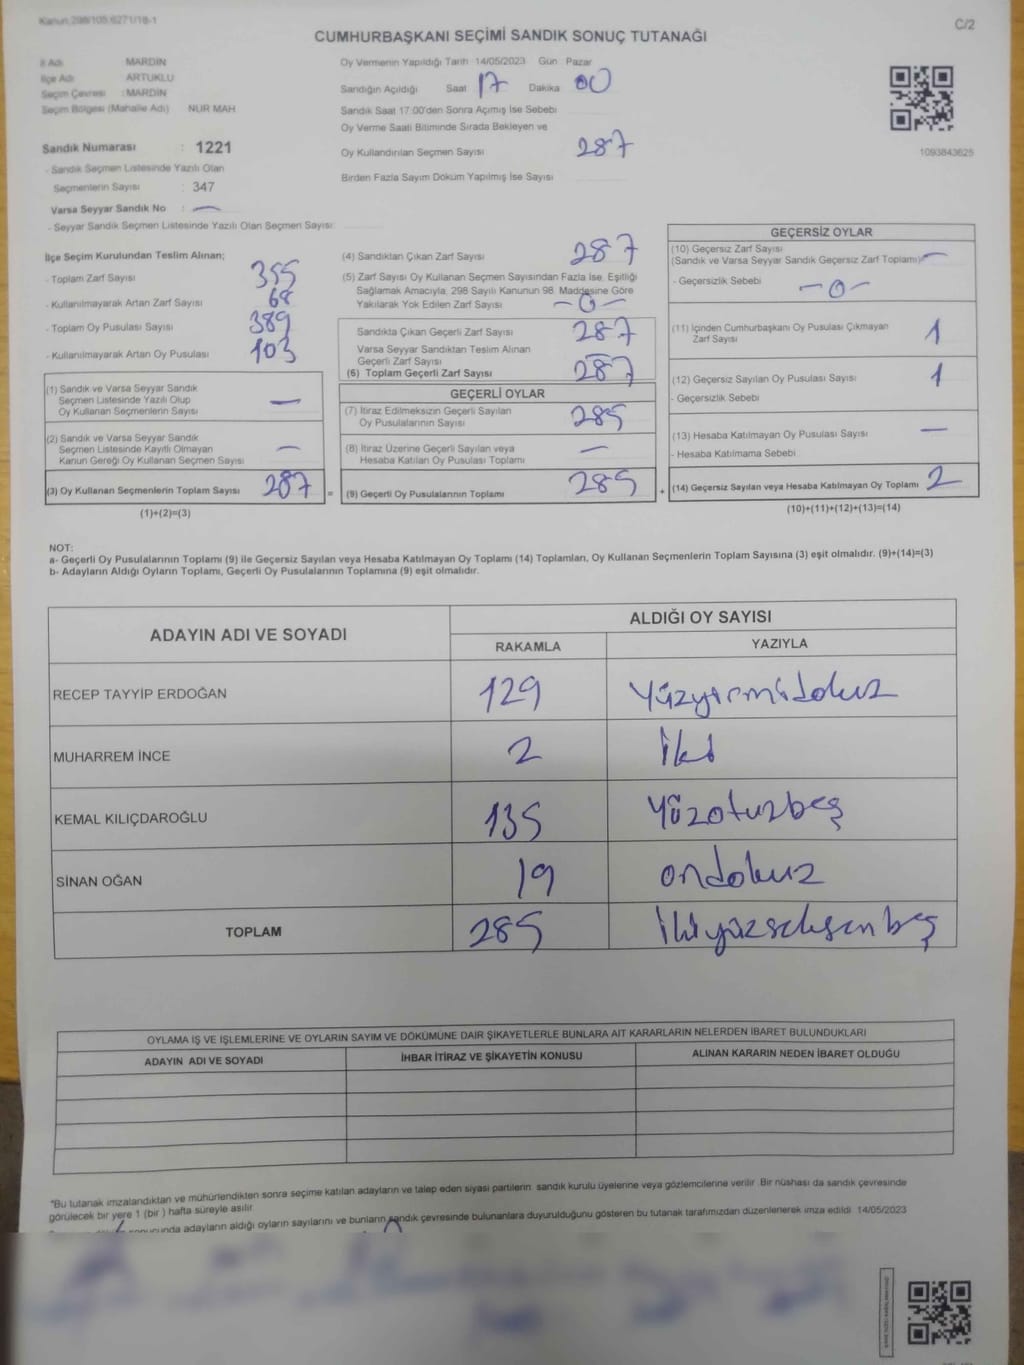 Kanun:298/105,6271/18-1
C/2
CUMHURBAŞKANI SEÇİMİ SANDIK SONUÇ TUTANAĞI
İl Adı MARDİN
İlçe Adı ARTUKLU
Seçim Çevresi : MARDİN
Seçim Bölgesi (Mahalle Adı) NUR MAH
Sandık Numarası : 1221
- Sandık Seçmen Listesinde Yazılı Olan
Seçmenlerin Sayısı : 347
Varsa Seyyar Sandık No : —
- Seyyar Sandık Seçmen Listesinde Yazılı Olan Seçmen Sayısı:
Oy Vermenin Yapıldığı Tarih 14/05/2023 Gün Pazar
Sandığın Açıldığı Saat 17 Dakika 00
Sandık Saat 17:00'den Sonra Açılmış İse Sebebi
Oy Verme Saati Bitiminde Sırada Bekleyen ve
Oy Kullandırılan Seçmen Sayısı 287
Birden Fazla Sayım Döküm Yapılmış İse Sayısı
1093843625
İlçe Seçim Kurulundan Teslim Alınan;
- Toplam Zarf Sayısı 355
- Kullanılmayarak Artan Zarf Sayısı 68
- Toplam Oy Pusulası Sayısı 389
- Kullanılmayarak Artan Oy Pusulası 103
(1) Sandık ve Varsa Seyyar Sandık
Seçmen Listesinde Yazılı Olup
Oy Kullanan Seçmenlerin Sayısı —
(2) Sandık ve Varsa Seyyar Sandık
Seçmen Listesinde Kayıtlı Olmayan
Kanun Gereği Oy Kullanan Seçmen Sayısı —
(3) Oy Kullanan Seçmenlerin Toplam Sayısı 287 =
(1)+(2)=(3)
(4) Sandıktan Çıkan Zarf Sayısı 287
(5) Zarf Sayısı Oy Kullanan Seçmen Sayısından Fazla İse, Eşitliği
Sağlamak Amacıyla, 298 Sayılı Kanunun 98. Maddesine Göre
Yakılarak Yok Edilen Zarf Sayısı —0—
Sandıkta Çıkan Geçerli Zarf Sayısı 287
Varsa Seyyar Sandıktan Teslim Alınan
Geçerli Zarf Sayısı —
(6) Toplam Geçerli Zarf Sayısı 287
GEÇERLİ OYLAR
(7) İtiraz Edilmeksizin Geçerli Sayılan
Oy Pusulalarının Sayısı 285
(8) İtiraz Üzerine Geçerli Sayılan veya
Hesaba Katılan Oy Pusulası Toplamı —
(9) Geçerli Oy Pusulalarının Toplamı 285 +
GEÇERSİZ OYLAR
(10) Geçersiz Zarf Sayısı
(Sandık ve Varsa Seyyar Sandık Geçersiz Zarf Toplamı) —
- Geçersizlik Sebebi —0—
(11) İçinden Cumhurbaşkanı Oy Pusulası Çıkmayan
Zarf Sayısı 1
(12) Geçersiz Sayılan Oy Pusulası Sayısı 1
- Geçersizlik Sebebi
(13) Hesaba Katılmayan Oy Pusulası Sayısı —
- Hesaba Katılmama Sebebi
(14) Geçersiz Sayılan veya Hesaba Katılmayan Oy Toplamı 2
(10)+(11)+(12)+(13)=(14)
NOT:
a- Geçerli Oy Pusulalarının Toplamı (9) ile Geçersiz Sayılan veya Hesaba Katılmayan Oy Toplamı (14) Toplamları, Oy Kullanan Seçmenlerin Toplam Sayısına (3) eşit olmalıdır. (9)+(14)=(3)
b- Adayların Aldığı Oyların Toplamı, Geçerli Oy Pusulalarının Toplamına (9) eşit olmalıdır.
ADAYIN ADI VE SOYADI ALDIĞI OY SAYISI
RAKAMLA YAZIYLA
RECEP TAYYİP ERDOĞAN 129 Yüzyirmidokuz
MUHARREM İNCE 2 İki
KEMAL KILIÇDAROĞLU 135 Yüzotuzbeş
SİNAN OĞAN 19 ondokuz
TOPLAM 285 İkiyüzseksenbeş
OYLAMA İŞ VE İŞLEMLERİNE VE OYLARIN SAYIM VE DÖKÜMÜNE DAİR ŞİKAYETLERLE BUNLARA AİT KARARLARIN NELERDEN İBARET BULUNDUKLARI
ADAYIN ADI VE SOYADI İHBAR İTİRAZ VE ŞİKAYETİN KONUSU ALINAN KARARIN NEDEN İBARET OLDUĞU
*Bu tutanak imzalandıktan ve mühürlendikten sonra seçime katılan adayların ve talep eden siyasi partilerin sandık kurulu üyelerine veya gözlemcilerine verilir. Bir nüshası da sandık çevresinde
görülecek bir yere 1 (bir ) hafta süreyle asılır.
adayların aldığı oyların sayılarını ve bunların sandık çevresinde bulunanlara duyurulduğunu gösteren bu tutanak tarafımızdan düzenlenerek imza edildi 14/05/2023